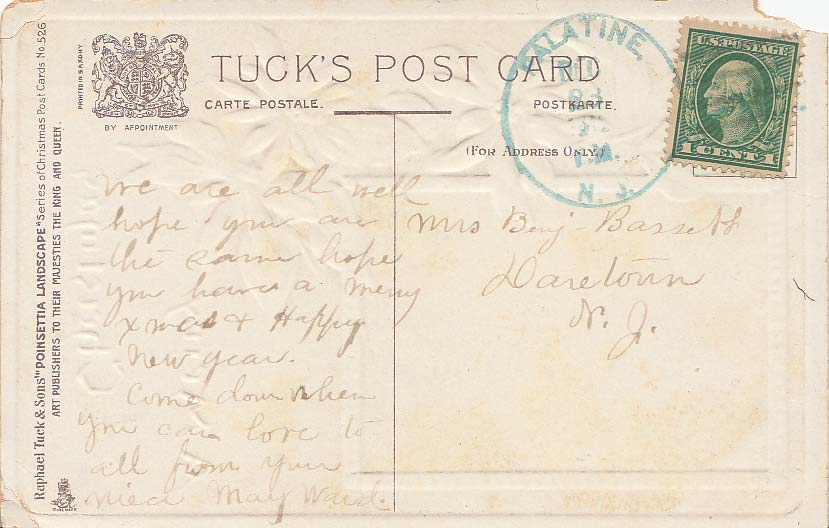 Raphael Tuck & Sons' "POINSETTIA LANDSCAPE" Series of Christmas Post Cards No 526
ART PUBLISHERS TO THEIR MAJESTIES THE KING AND QUEEN.
PRINTED IN SAXONY
BY APPOINTMENT
TUCK'S POST CARD
CARTE POSTALE.
POSTKARTE.
(FOR ADDRESS ONLY.)
PALATINE,
N. J.
U.S. POSTAGE
1 CENT 1
We are all well
hope you are
the same hope
you have a merry
xmas & Happy
New year.
Come down when
you can love to
all from your
niece May Ward.
Mrs Benj Bassett
Daretown
N. J.